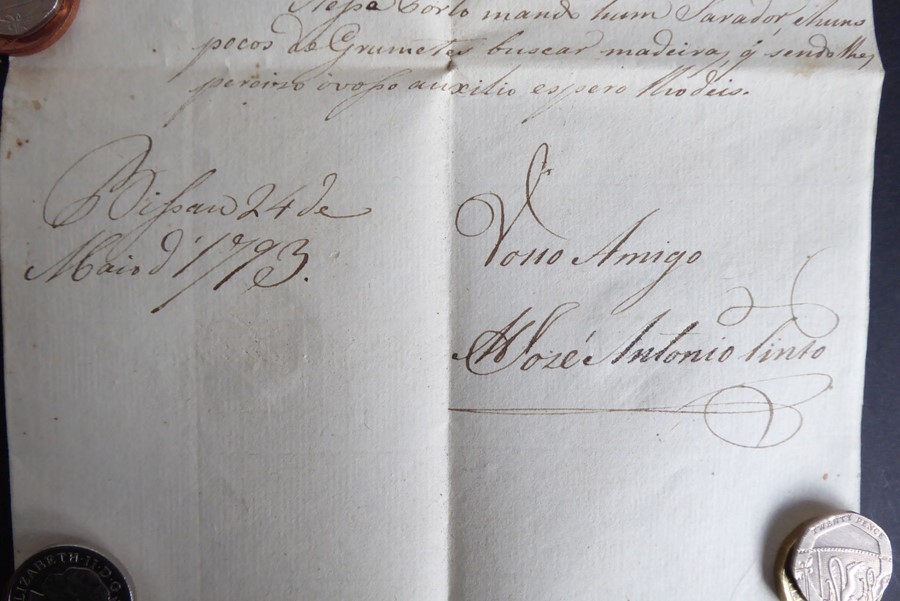 Nessa Porto mando hum Sarador, e huns
pocos de Grumetes buscar madeira, q̃ sendo lhe,
percizo o vosso auxilio espero lho deis.
Bissau 24 de
Maio d' 1793.
Vosso Amigo
José Antonio Pinto
ELIZABETH·II·D·G
TWENTY PENCE